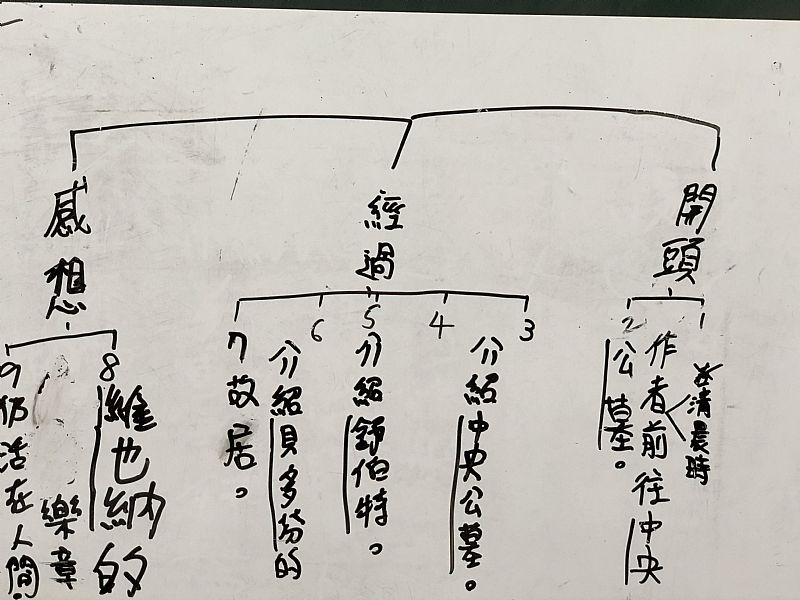 開頭
1
2
作者前往中央
在清晨時
公墓。
經過
3
4
5
6
7
介紹中央公墓。
介紹舒伯特。
介紹貝多芬的
故居。
感想
8
9
維也納的
樂章
仍活在人間。